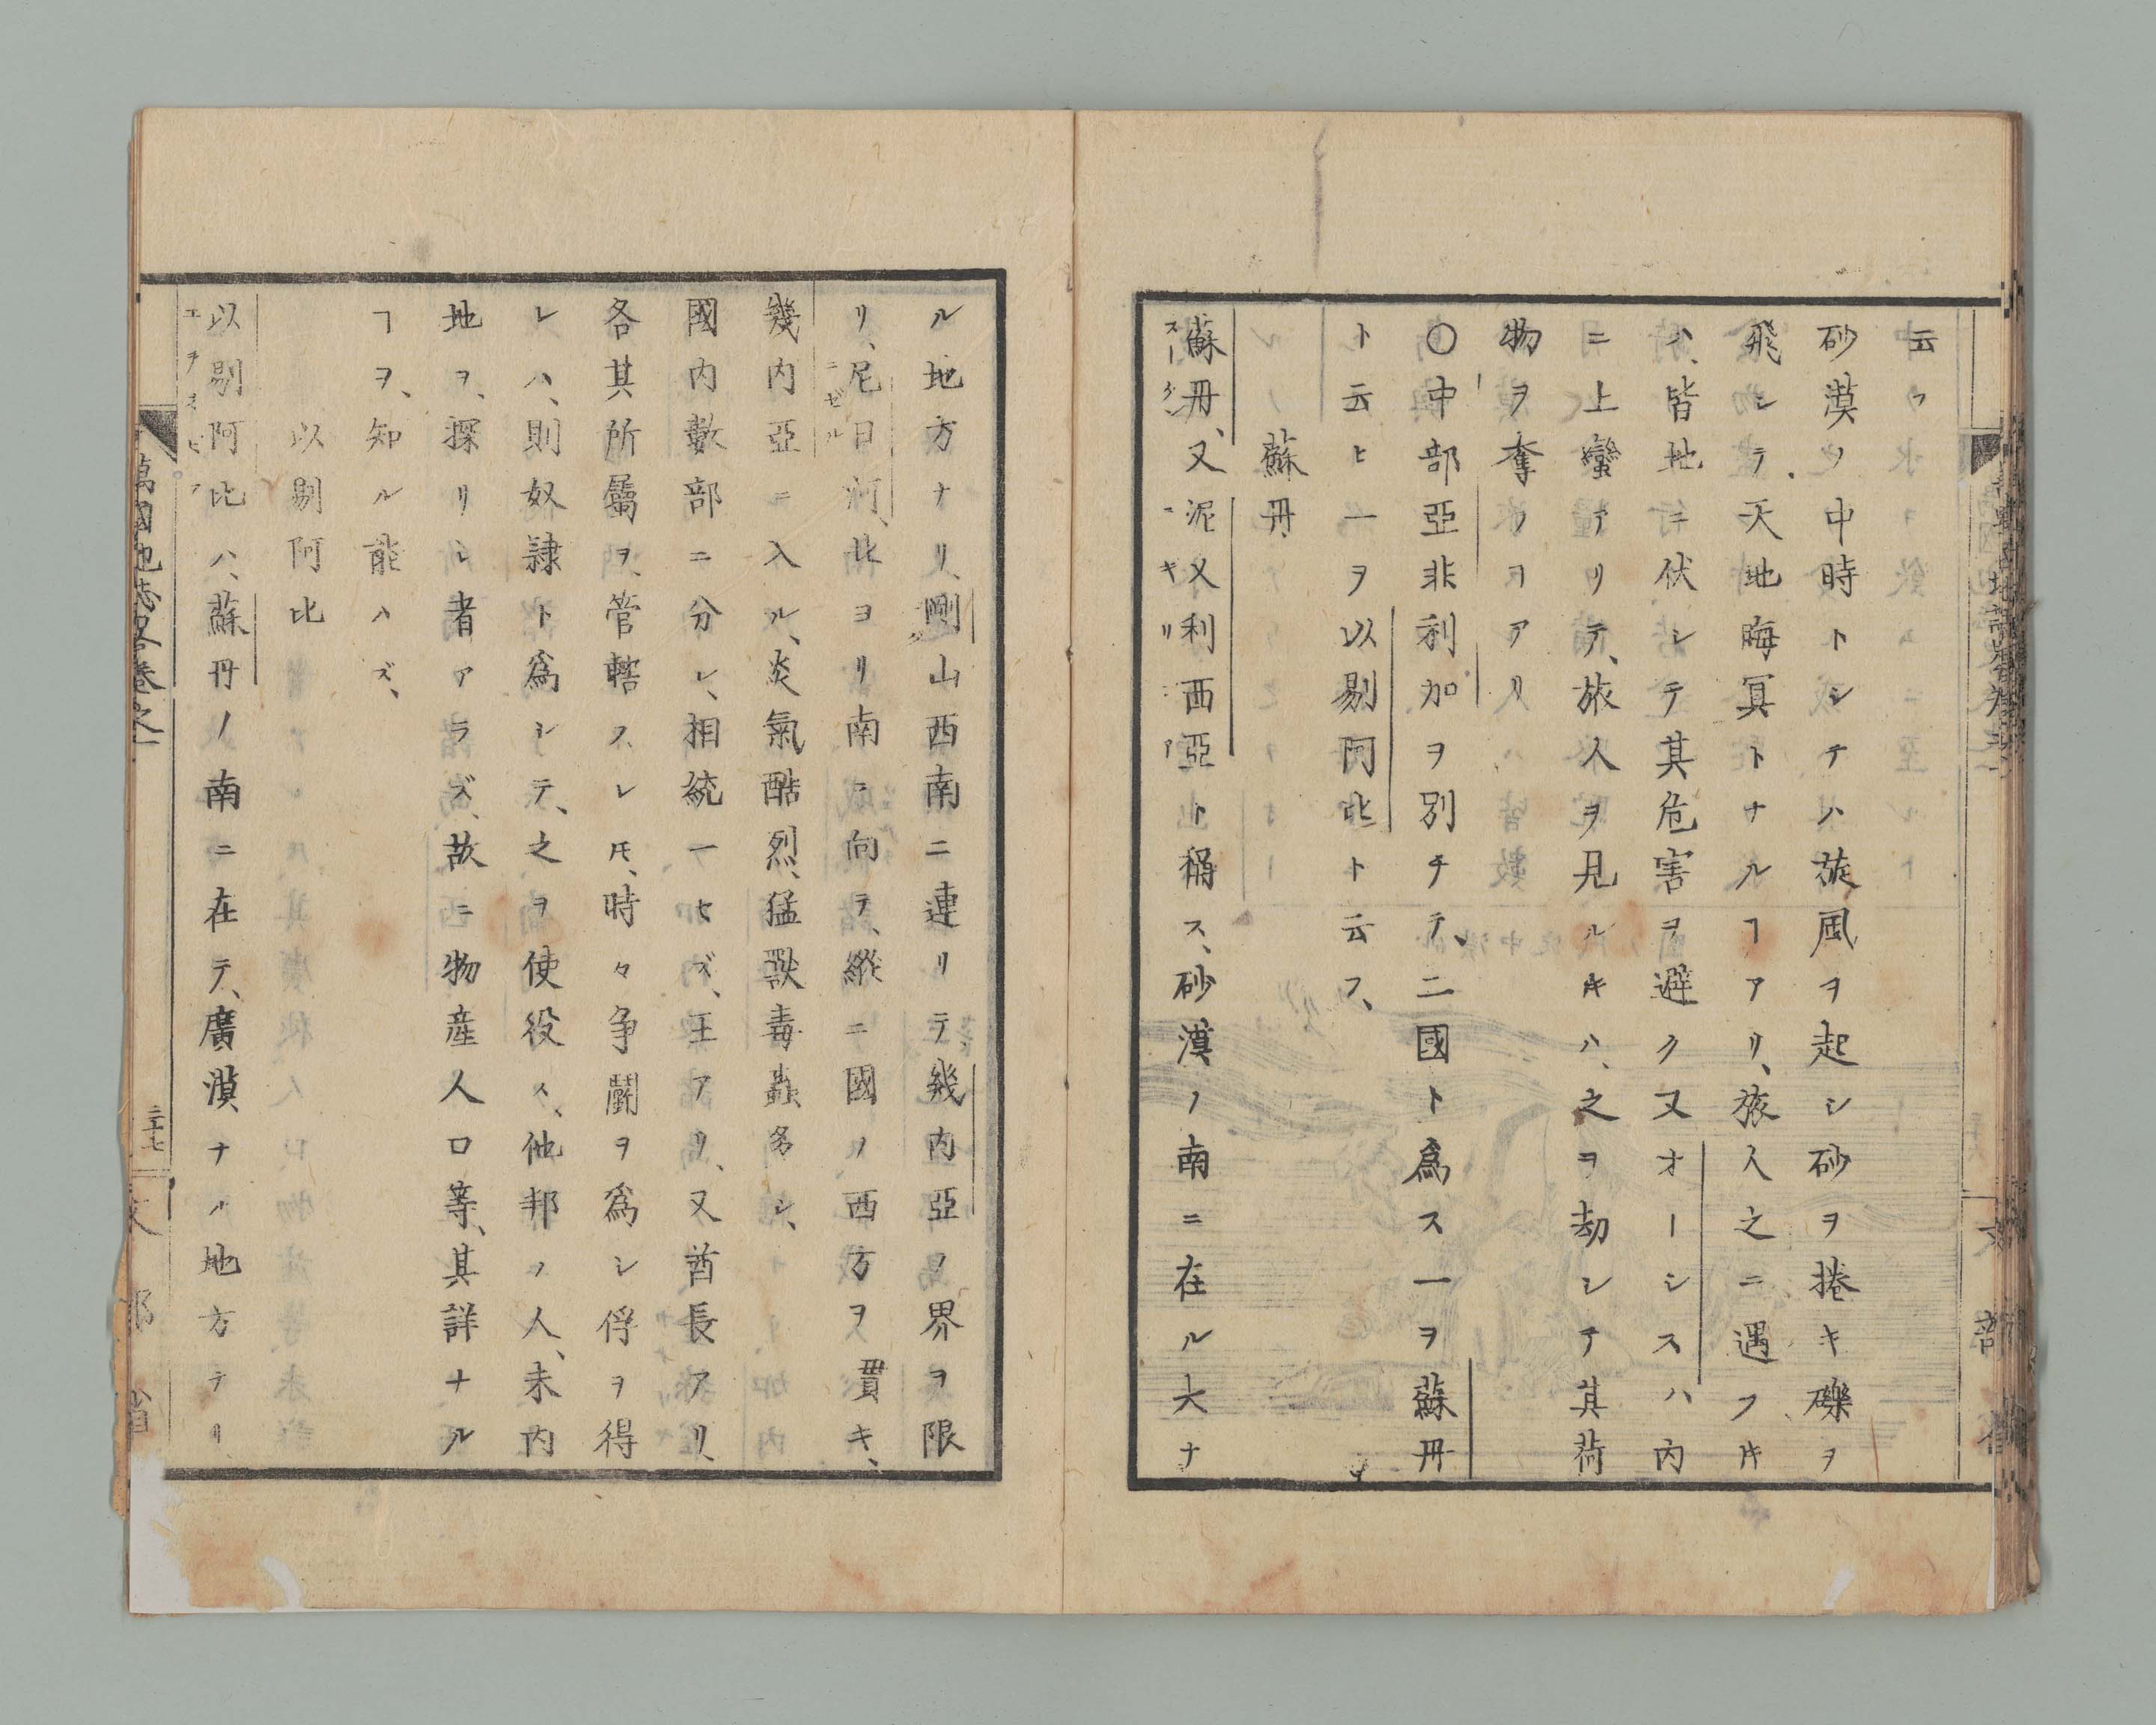 云フ
砂漠ノ中時トシテハ旋風ヲ起シ砂ヲ捲キ礫ヲ
飛シテ天地晦冥トナルヿアリ、旅人之ニ遇フ𪜈
ハ、皆地ニ伏シテ其危害ヲ避ク又オーシスハ内
ニ土蠻アリテ、旅人ヲ見ルキハ、之ヲ劫シテ其荷
物ヲ奪フヿアリ
〇中部亞非利加ヲ別チテ、二國ト爲ス一ヲ蘇丹
ト云ヒ一ヲ以剔阿比ト云フ、
蘇丹
蘇丹、又泥义利西亞ト稱ス、砂漠ノ南ニ在ル大ナ
スーダン ニギリシア
ル地方ナリ、剛山西南ニ連リテ、幾内亞ノ界ヲ限
リ、尼日河、北ヨリ南ニ向テ、縱ニ國ノ西方ヲ貫キ、
ニゼル
幾内亞ニ入ル、炎氣酷烈、猛獸毒蟲多シ、
國内數部ニ分レ、相統一セズ、王アリ、又酋長アリ、
各其所屬ヲ、管轄スレ𪜈、時々争鬪ヲ爲シ俘ヲ得
レハ、則奴隷ト爲シテ、之ヲ使役ス、他邦ノ人、未内
地ヲ、探リシ者アラズ、故ニ物産人口等、其詳ナル
ヿヲ、知ル能ハズ、
以剔阿比
以剔阿比ハ、蘇丹ノ南ニ在テ、廣漠ナル地方ナリ、
エチヲピア
萬國地誌畧卷之二
三十七
文部省